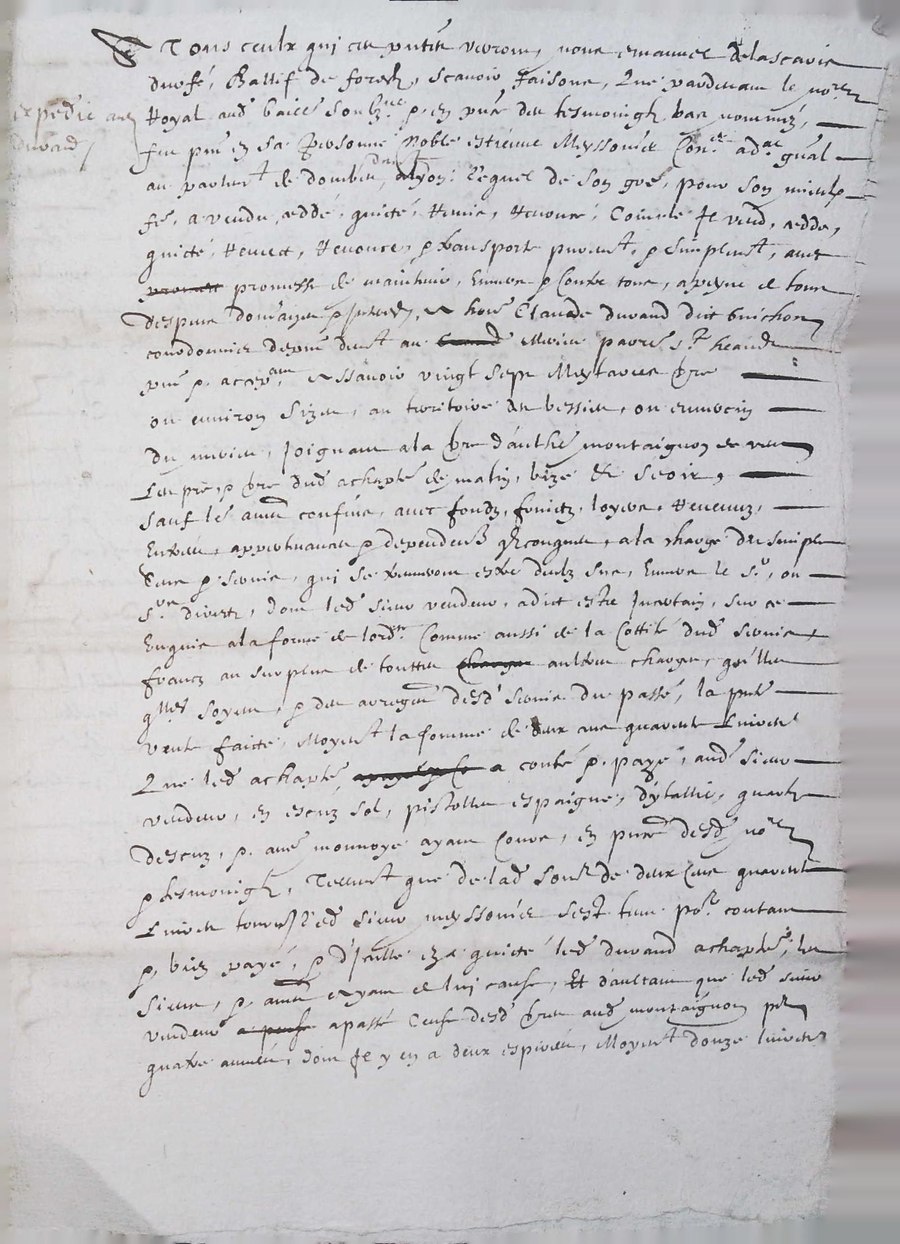 A Tous ceulx qui ces pntes verront, nous emanuel delascaris
durfé, Baillif de forestz, scavoir faisons, Que pardevant le nore
expedié aud durand
Royal aud bailliage soubzne, p. en pnce des tesmoingtz bas nommez,
fut pnt en sa personne Noble estienne Meyssonier Coner adat gnal
au parlemt de dombes, alyon: Lequel de son gré, pour son mieulx
fé, a vendu, cedde, quicté, Remis, Renoncé, Comme Je vend, cedde,
quicte, Remect, Renonce, p transporte puremt, p simplemt, avec
promesse de maintenir, Envers p Contre tous, a peyne de tous
despens domaiges p Interestz, a hone Claude durand dict buichon
courdonnier demeurant au paroisse st heand
pnt p. acceptant Assavoir vingt sept Mestairees tre
ou environ sizes, au territoire de bessieu, ou
Joignant a la tre d'anthe montaignon de
Les pré p tre dud achapteur de matin, bize & de seoir,
Sauf les autres confins, avec fondz, fruictz, loyers, Revenuz,
Entrées, appartenances p dependences qlconques, a la charge du simple
Cens p servis, qui se trouveront estre deubz sus, Envers le sr, ou
srs divers, dont led sieur vendeur, a dict estre Incertain, sur ce
Enquis a la forme de lordce Comme aussi de la Cottité dud servis
francz au surplus de touttes aultres charges, qu'elles
qlles soyent, p des arreages desd servis du passé, la pnte
vente faicte, Moyent la somme de deux cens quarente Livres
Que led achapteur, a conté p. payé, aud sieur
vendeur, en escuz sol, pistolles espaigne, d'ytallie, quartz
descuz, p. autre monnoye ayant cours, en pnce desd nore
p tesmoingtz, Tellemt que de lad somme de deux cens quarente
Livres tournois led sieur meyssonier sest tenu pour contant
p, bien payé, p d'Icelle en a quicté led durand achapteur, les
siens, p. autres ayans de luy cause, Et daultant que led sieur
vendeur a passé Cense desd tres aud montaignon pour
quatre années, dont Il y en a deux expirées, Moyent douze livres